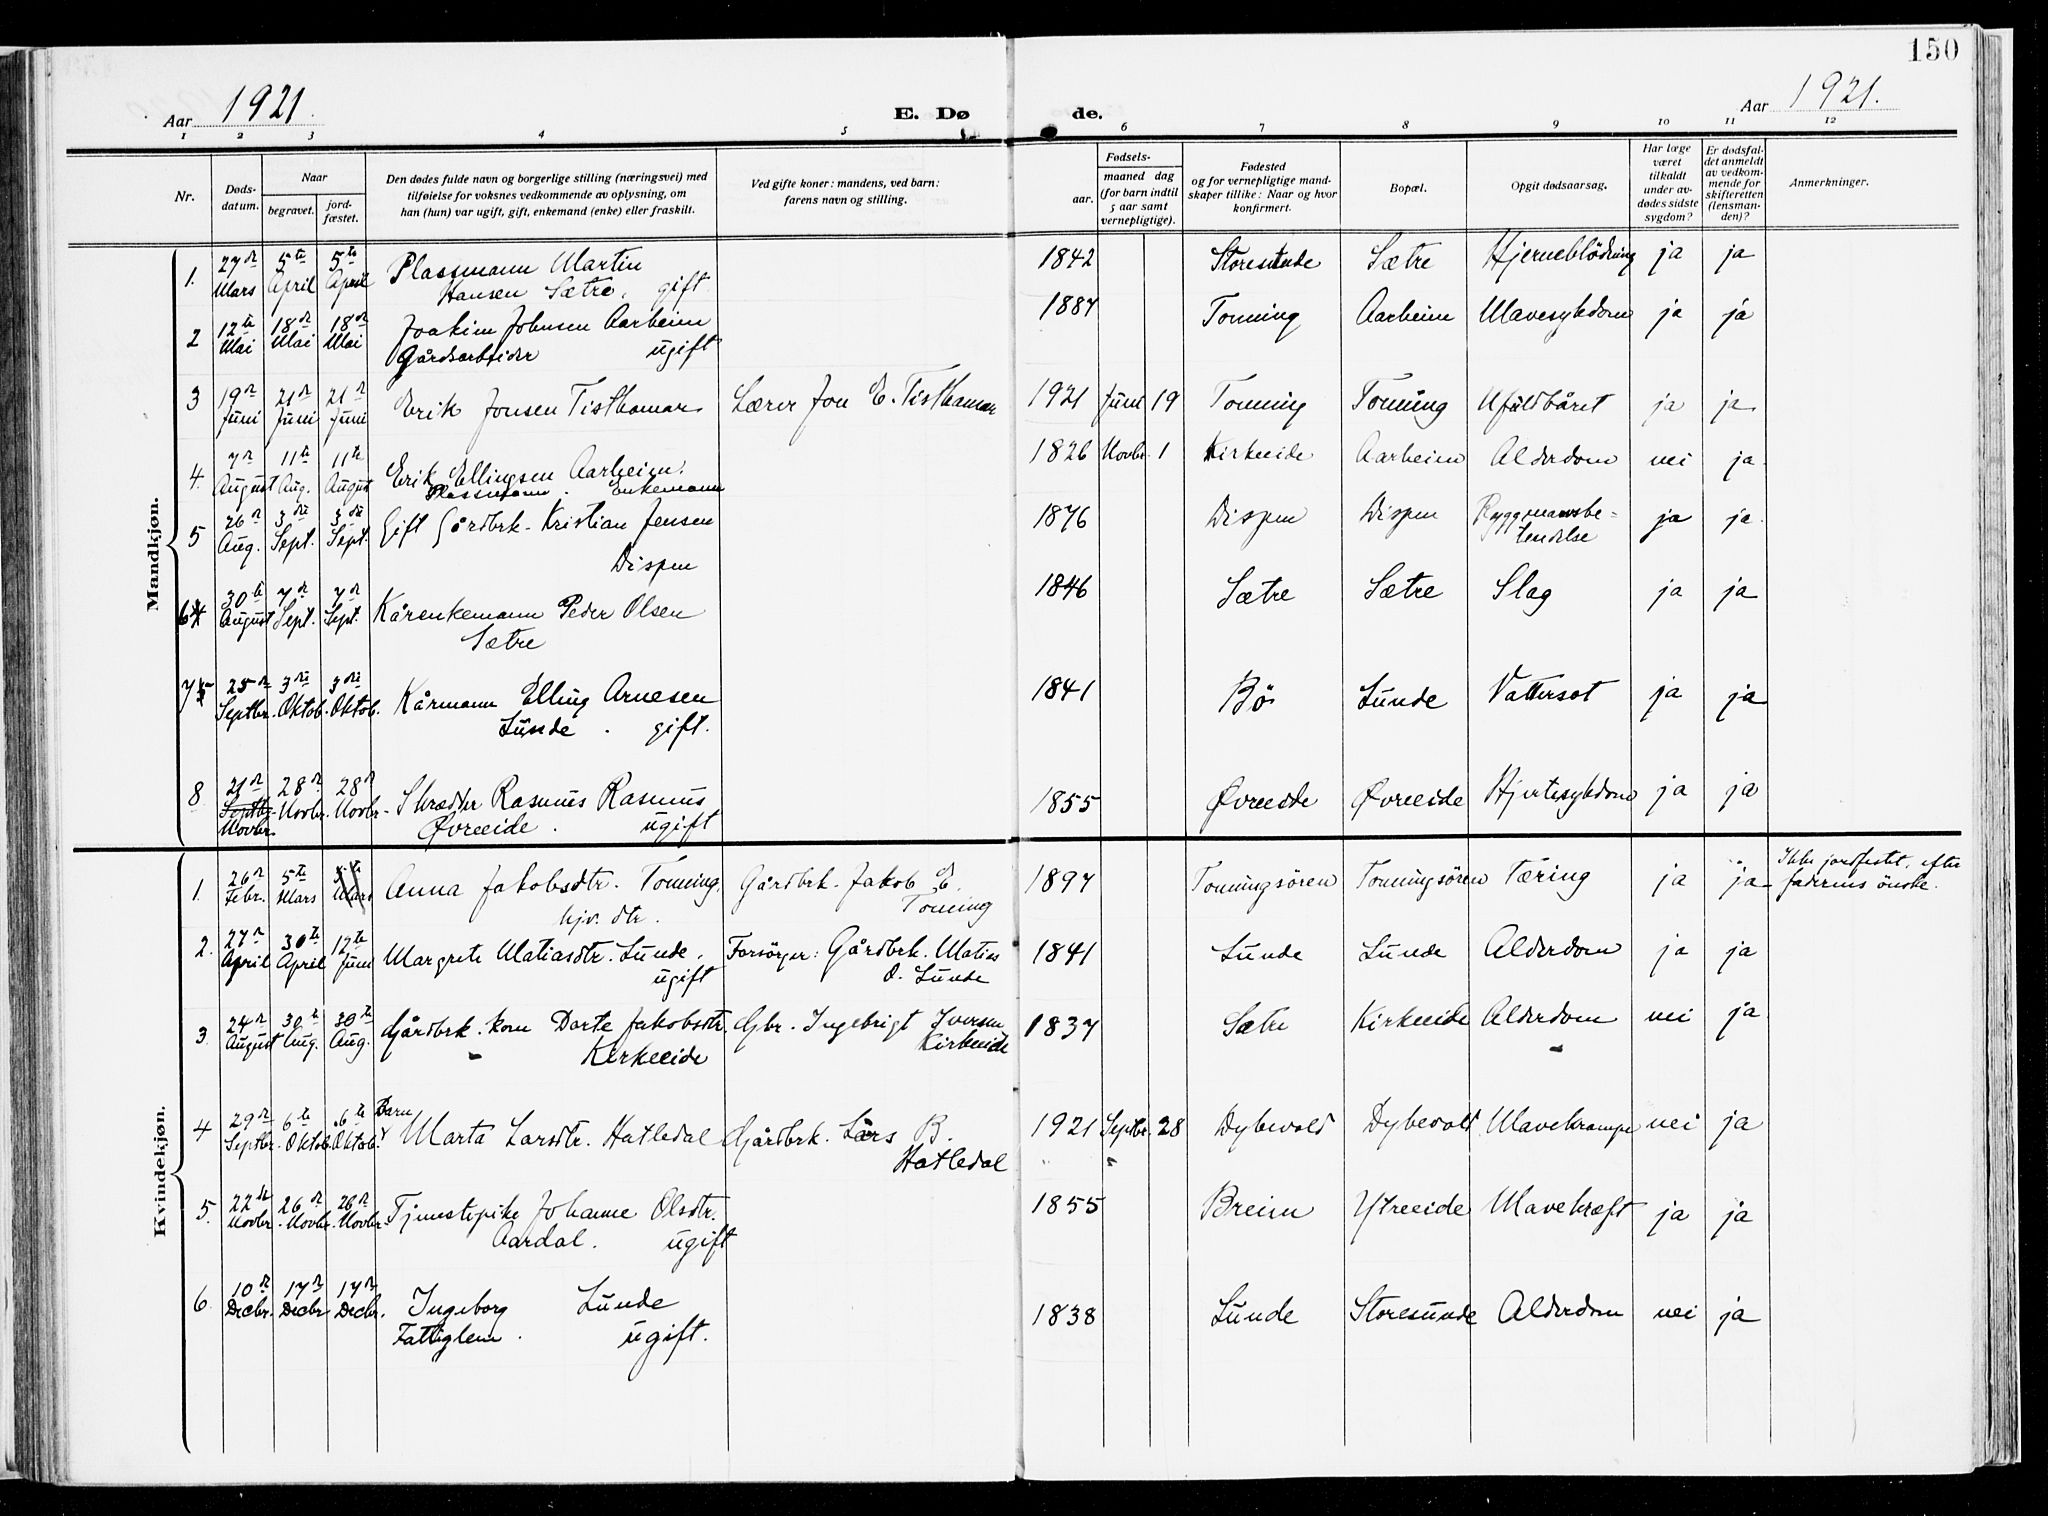 150
Aar 1921.
E. Døde.
Aar 1921.
1 2 3 4 5 6 7 8 9 10 11 12
Nr.
Døds-datum.
Naar
begravet.
jord-fæstet.
Den dødes fulde navn og borgerlige stilling (næringsvei) med
tilføielse for voksnes vedkommende av oplysning, om
han (hun) var ugift, gift, enkemand (enke) eller fraskilt.
Ved gifte koner: mandens, ved barn:
farens navn og stilling.
Fødsels-
aar.
maaned dag
(for barn indtil
5 aar samt
vernepligtige).
Fødested
og for vernepligtige mand-
skaper tillike: Naar og hvor
konfirmert.
Bopæl.
Opgit dødsaarsag.
Har læge
været
tilkaldt
under av-
dødes sidste
sygdom?
Er dødsfal-
det anmeldt
av vedkom-
mende for
skifteretten
(lensman-
den)?
Anmerkninger.
Mandkjøn.
1. 27de Mars 5te April 5te April Plassmann Martin Hansen Sætre, gift. 1842 Storesunde Sætre Hjerneblödning ja ja
2 12te Mai 18de Mai 18de Mai Joakim Johnsen Aarheim Gårdsarbeider ugift 1887 Tonning Aarheim Mavesykdom ja ja
3 19de Juni 21de Juni 21de Juni Erik Jonsen Tisthamar Lærer Jon E. Tisthamar 1921 Juni 19 Tonning Tonning Ufuldbåret ja ja
4. 7de August 11te Aug. 11te August Erik Ellingsen Aarheim. Plassmann. Enkemann 1826 Novbr. 1 Kirkeeide Aarheim Alderdom nei ja
5 26de Aug. 3die Sept. 3die Sept. Gift Gårdbrk. Kristian Jensen Dispen 1876 Dispen Dispen Ryggmarvsbe=tendelse ja ja
6 30te August 7de Sept. 7de Sept. Kårenkemann Peder Olsen Sætre 1846 Sætre Sætre Slag ja ja
7 25de Septbr. 3die Oktob. 3die Oktob. Kårmann Elling Arnesen Lunde. gift. 1841 Bö Lunde Vattersot ja ja
8 21de Septbr. Novbr. 28de Novbr. 28de Novbr. Skrædder Rasmus Rasmus Øvreeide. ugift 1855 Øvreeide Øvreeide Hjertesykdom ja ja
Kvindekjøn.
1. 26de Febr. 5te Mars 5te Mars Anna Jakobsdtr. Tonning. hjv. dtr. Gårdbrk. Jakob E. Tonning 1897 Tonningsören Tonningsören Tæring ja ja Ikke jordfestet, efter faderens önske.
2. 27de April 30te April 12te Juni Margrete Matiasdtr. Lunde. ugift Forsörger: Gårdbrk. Matias O. Lunde 1841 Lunde Lunde Alderdom ja ja
3. 24de August 30te Aug. 30te Aug. Gårdbrk. kone Dorte Jakobsdtr. Kirkeeide Gbr. Ingebrigt Iversen Kirkeeide 1837 Sætre Kirkeeide Alderdom nei ja
4 29de Septbr. 6te Oktob. 6te Oktob. Barn Marta Larsdtr. Hatledal Gårdbrk. Lars B. Hatledal 1921 Septbr. 28 Dybevold Dybevold Mavekrampe nei ja
5. 22de Novbr. 26de Novbr. 26de Novbr. Tjenestepike Johanne Olsdtr. Aardal. ugift 1855 Breim Ytreeide Mavekræft ja ja
6. 10de Decbr. 17de Decbr 17de Decbr. Ingeborg Lunde Fattiglem. ugift. 1838 Lunde Storesunde Alderdom nei ja